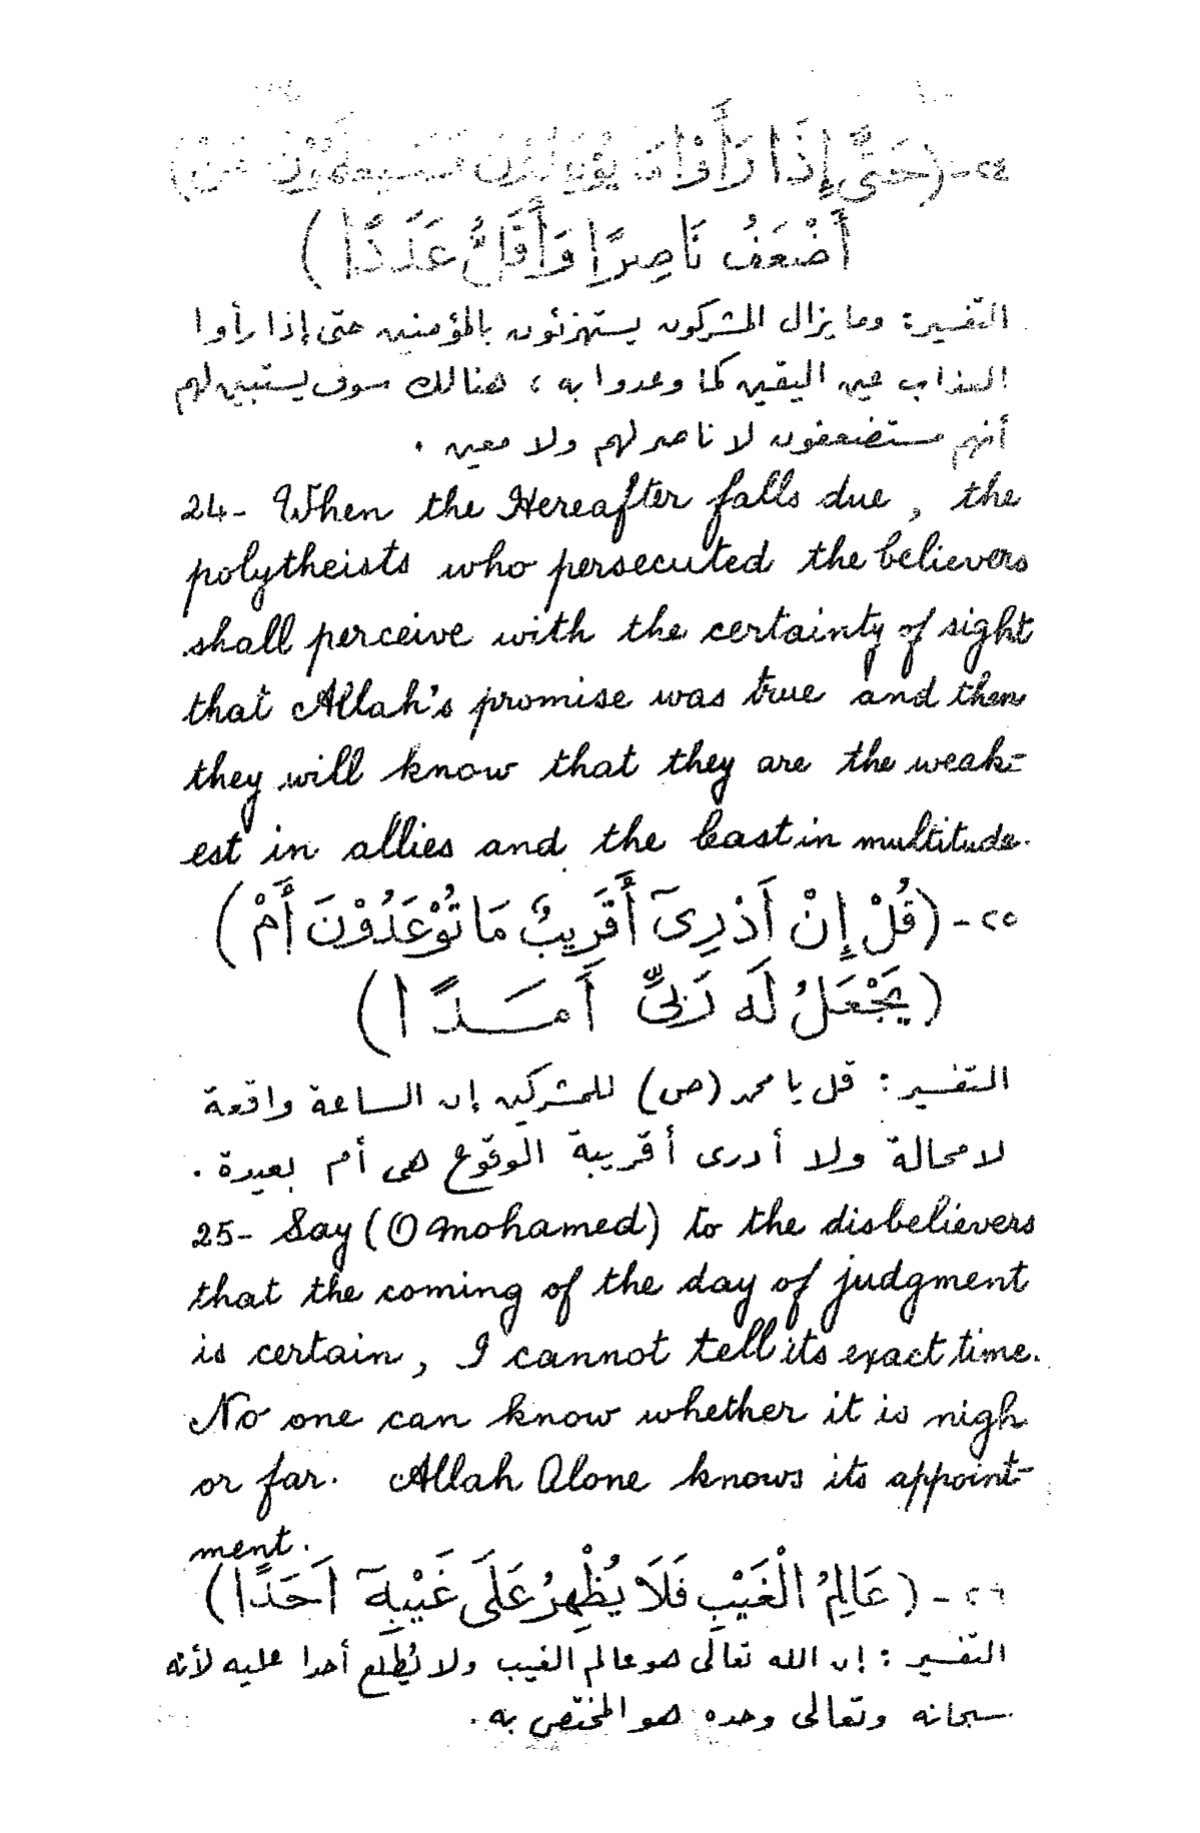 ٢٤- (حَتَّى إِذَا رَأَوْا مَا يُوْعَدُوْنَ فَسَيَعْلَمُوْنَ مَنْ)
أَضْعَفُ نَاصِرًا وَأَقَلُّ عَدَدًا)
التفسير: وما يزال المشركون يستهزئون بالمؤمنين حتى إذا رأوا
العذاب عين اليقين كما وعدوا به ، هنالك سوف يستبين لهم
أنهم مستضعفون لا ناصر لهم ولا معين .
24- When the Hereafter falls due, the
polytheists who persecuted the believers
shall perceive with the certainty of sight
that Allah's promise was true and then
they will know that they are the weak=
est in allies and the least in multitude.
٢٥- (قُلْ إِنْ أَدْرِىٓ أَقَرِيبٌ مَا تُوْعَدُوْنَ أَمْ)
(يَجْعَلُ لَهُ رَبِّىٓ أَمَدًا)
التفسير : قل يا محمد (ص) للمشركين إن الساعة واقعة
لا محالة ولا أدرى أقريبة الوقوع هى أم بعيدة .
25- Say (O Mohamed) to the disbelievers
that the coming of the day of judgment
is certain, I cannot tell its exact time.
No one can know whether it is nigh
or far. Allah Alone knows its appoint-
ment.
٢٦- (عَالِمُ الْغَيْبِ فَلَا يُظْهِرُ عَلَى غَيْبِهِٓ أَحَدًا)
التفسير : إن الله تعالى هو عالم الغيب ولا يُطلع أحدا عليه لأنه
سبحانه وتعالى وحده هو المختص به .